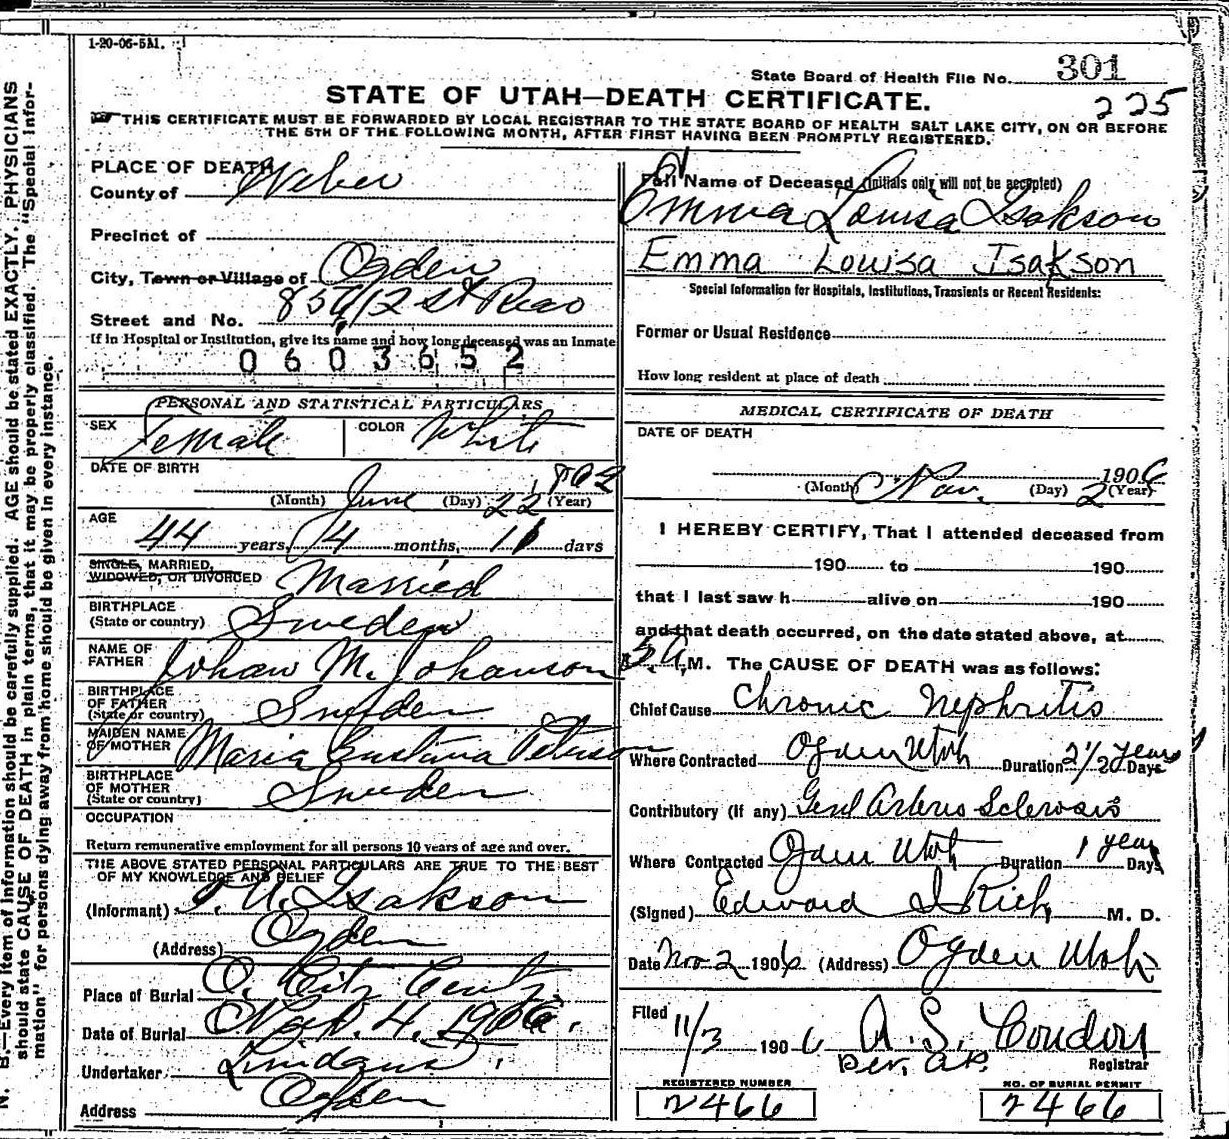 1-20-06-5M.
State Board of Health File No. 301
225
STATE OF UTAH—DEATH CERTIFICATE.
THIS CERTIFICATE MUST BE FORWARDED BY LOCAL REGISTRAR TO THE STATE BOARD OF HEALTH SALT LAKE CITY, ON OR BEFORE
THE 5TH OF THE FOLLOWING MONTH, AFTER FIRST HAVING BEEN PROMPTLY REGISTERED.
PLACE OF DEATH
County of Weber
Precinct of
City, Town or Village of Ogden
Street and No. 856 12 St Rear
If in Hospital or Institution, give its name and how long deceased was an Inmate
0603652
PERSONAL AND STATISTICAL PARTICULARS
SEX Female COLOR White
DATE OF BIRTH
1862
(Month) June (Day) 22 (Year)
AGE
44 years, 4 months, 11 days
SINGLE, MARRIED,
WIDOWED, OR DIVORCED Married
BIRTHPLACE
(State or country) Sweden
NAME OF
FATHER Johan M. Johanson
BIRTHPLACE
OF FATHER
(State or country) Sweden
MAIDEN NAME
OF MOTHER Maria Peterson
BIRTHPLACE
OF MOTHER
(State or country) Sweden
OCCUPATION
Return remunerative employment for all persons 10 years of age and over.
THE ABOVE STATED PERSONAL PARTICULARS ARE TRUE TO THE BEST
OF MY KNOWLEDGE AND BELIEF
(Informant) Isakson
(Address) Ogden
Place of Burial O. City Cemty
Date of Burial Nov. 4, 1906.
Undertaker
Address Ogden
Full Name of Deceased (initials only will not be accepted)
Emma Louisa Isakson
Emma Louisa Isakson
Special Information for Hospitals, Institutions, Transients or Recent Residents:
Former or Usual Residence
How long resident at place of death
MEDICAL CERTIFICATE OF DEATH
DATE OF DEATH
1906
(Month) Nov. (Day) 2 (Year)
I HEREBY CERTIFY, That I attended deceased from
190 to 190
that I last saw h alive on 190
and that death occurred, on the date stated above, at
5 A. M. The CAUSE OF DEATH was as follows:
Chief Cause Chronic Nephritis
Where Contracted Ogden Utah Duration 2 1/2 years Days
Contributory (if any) Genl Arterio Sclerosis
Where Contracted Ogden Utah Duration 1 year Days
(Signed) Edward I Rich, M. D.
Date Nov 2 1906 (Address) Ogden Utah
Filed 11/3 1906 A. S. Condon
Per. A.P. Registrar
REGISTERED NUMBER
2466
NO. OF BURIAL PERMIT
2466
N. B.—Every item of information should be carefully supplied. AGE should be stated EXACTLY. PHYSICIANS
should state CAUSE OF DEATH in plain terms, that it may be properly classified. The "Special Infor-
mation" for persons dying away from home should be given in every instance.